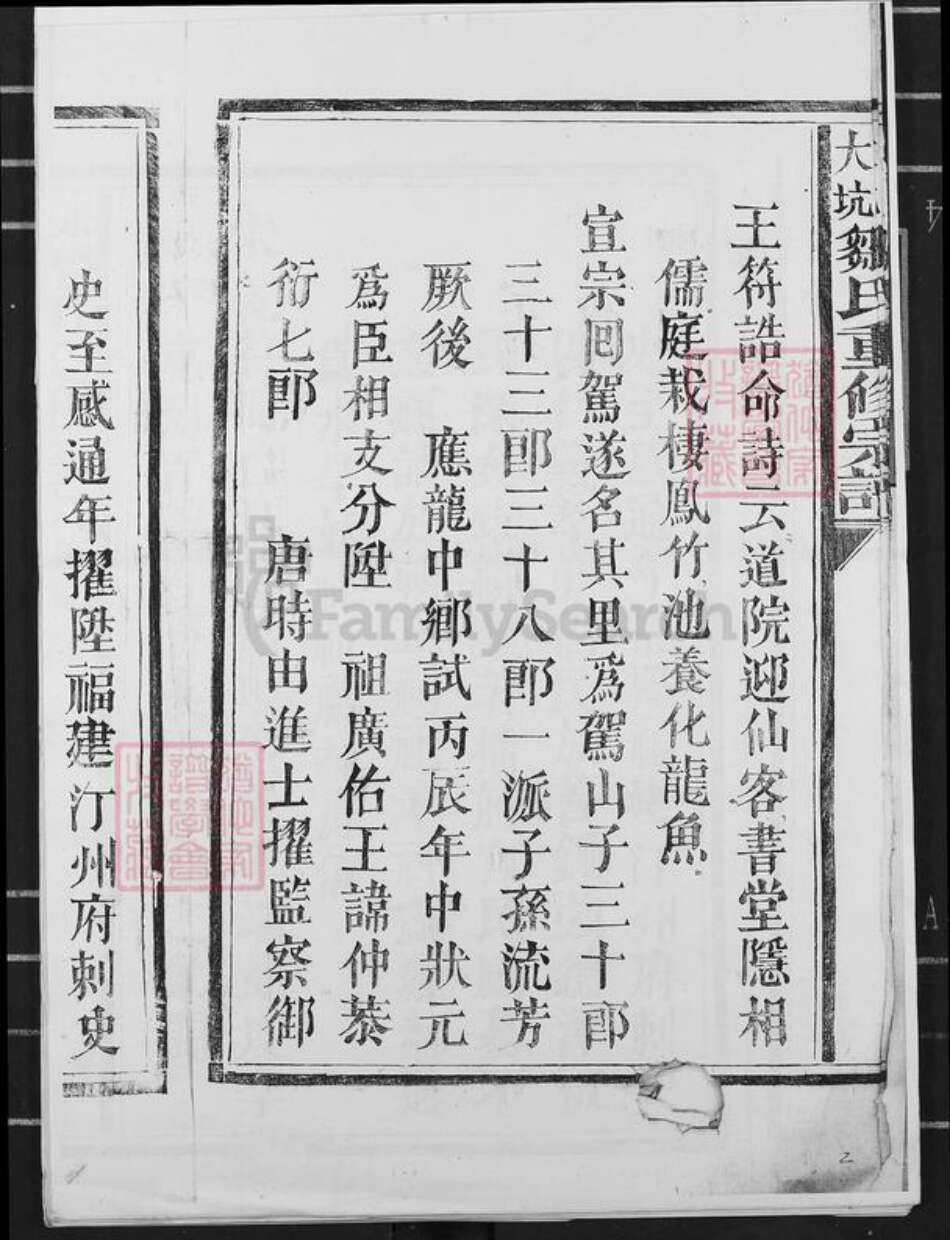 大坑鄒氏重修宗譜
王符誥命詩云道院迎仙客書堂隱相
儒庭栽棲鳳竹池養化龍魚
宣宗回駕遂名其里為駕山子三十郎
三十三郎三十八郎一派子孫流芳
厥後 應龍中鄉試丙辰年中狀元
爲臣相支分陞 祖廣佑王諱仲恭
衍七郎 唐時由進士擢監察御
史至感通年擢陞福建汀州府刺史
FamilySearch
2